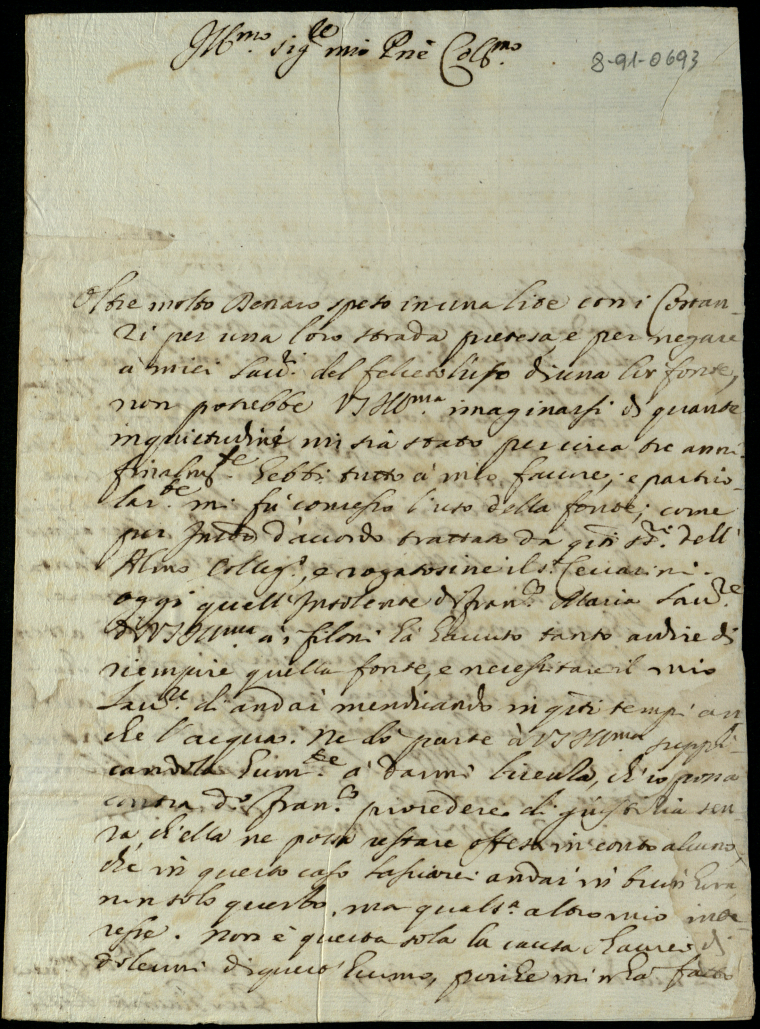 Ill.mo Sig.re mio P.ne Col.mo
8-91-0693
Oltre molto Denaro speso in una lite con i Contan-
ri per una loro strada pretesa, e per negare
a miei Lau.ri del felceto l'uso di una lor fonte,
non potrebbe VS Ill.ma imaginarsi di quante
inquietudini mi sia stato per circa tre anni.
finalm.te hebbi tutto à mio favore, e partico-
lar.te mi fù concesso l'uso della fonte, come
per d'accordo trattato da q.ti SS.ri dell'
Almo Colleg.o, e rogatosine il S.r Ceccarini.
oggi quell'Insolente di Fran.co Maria Lau.re
di VS Ill.ma a i filoni hà hauuto tanto ardire di
riempire quella fonte, e necessitare il mio
Lau.re di andar mendicando in q.ti tempi an
che l'acqua. Ne dò parte à VS Ill.ma suppli-
candola hum.te à darmi licenza, ch'io possa
contra d.o Fran.co procedere di giustitia sen-
za, ch'ella ne possa restare offesa in conto alcuno,
che in questo caso lasciarei andar in buon'hora
non solo questo, ma quals.a altro mio inte-
resse. Non è questa sola la causa c'haurei di
dolermi di questo huomo, perche mi n'hà fatto